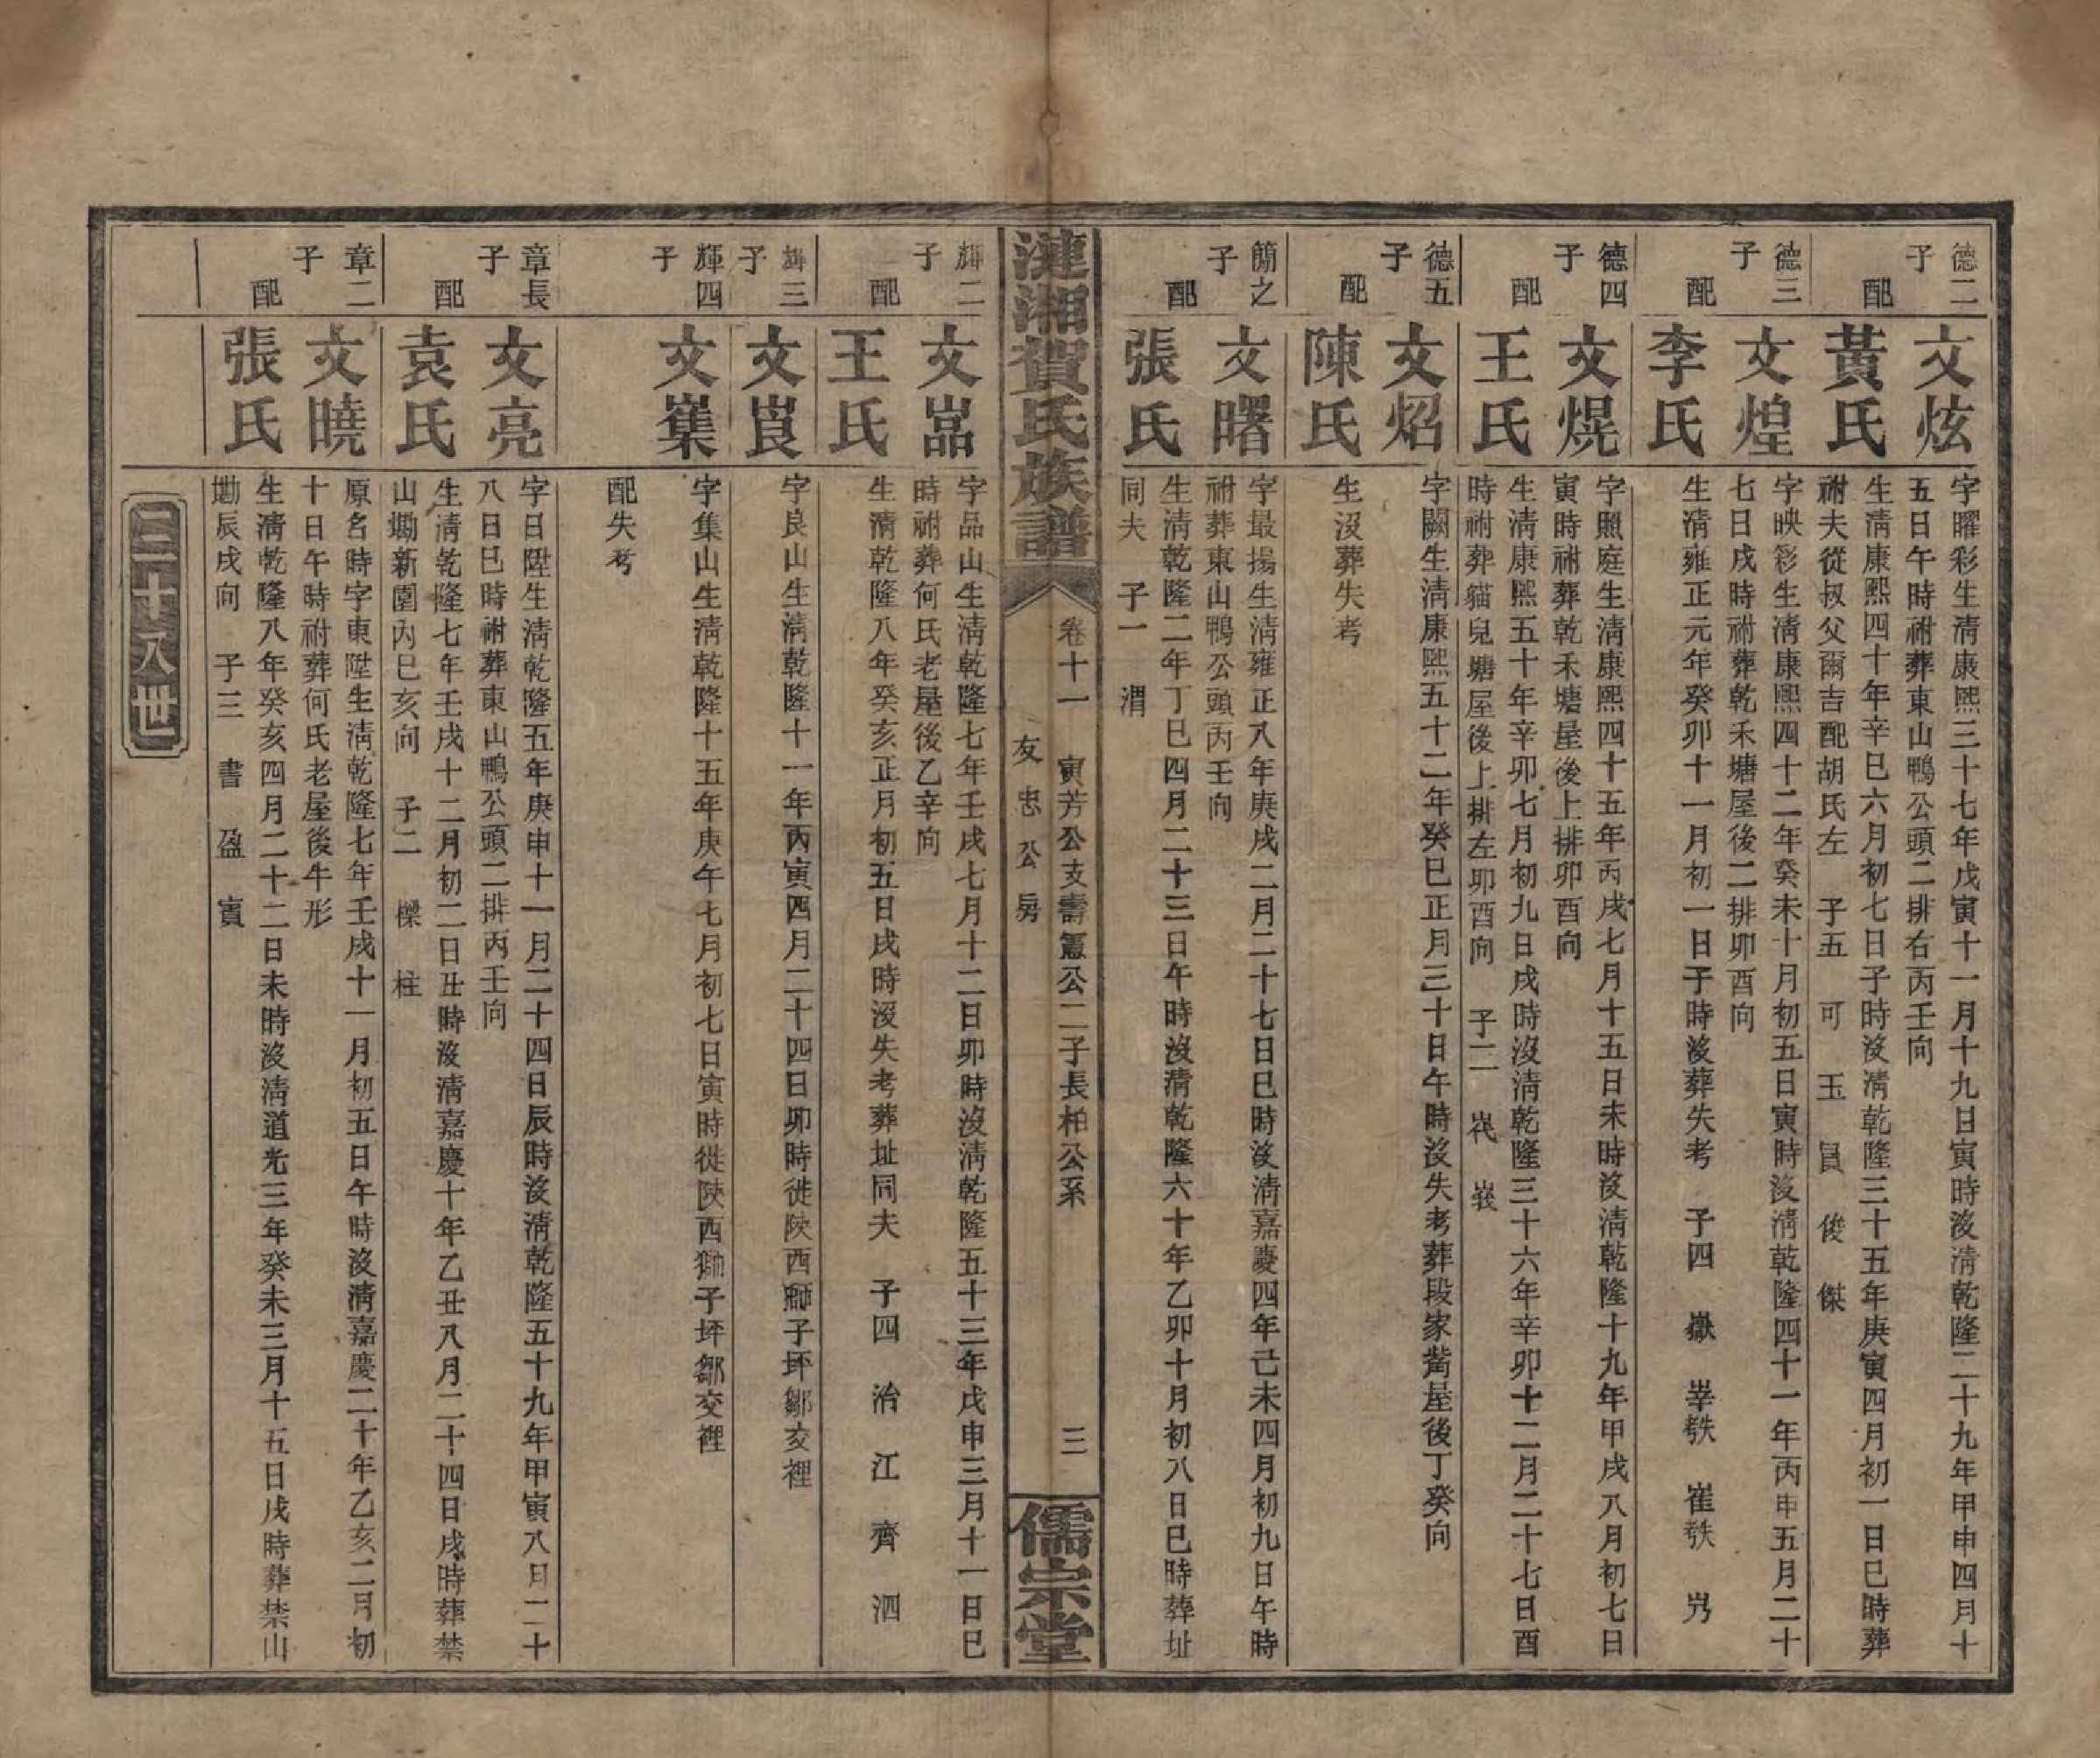 德二子
文炫
字曜彩生清康熙三十七年戊寅十一月十九日寅時沒清乾隆二十九年甲申四月十
五日午時祔葬東山鴨公頭二排右丙壬向
配
黃氏
生清康熙四十年辛巳六月初七日子時沒清乾隆三十五年庚寅四月初一日巳時葬
祔夫從叔父爾吉配胡氏左 子五 可 玉 員 俊 傑
德三子
文煌
字映彩生清康熙四十二年癸未十月初五日寅時沒清乾隆四十一年丙申五月二十
七日戌時祔葬乾禾塘屋後二排卯酉向
配
李氏
生清雍正元年癸卯十一月初一日子時沒葬失考 子四 嶽 崒殀 崔殀 屴
德四子
文熀
字照庭生清康熙四十五年丙戌七月十五日未時沒清乾隆十九年甲戌八月初七日
寅時祔葬乾禾塘屋後上排卯酉向
配
王氏
生清康熙五十年辛卯七月初九日戌時沒清乾隆三十六年辛卯十二月二十七日酉
時祔葬貓兒塘屋後上排左卯酉向 子二
德五子
文炤
字闕生清康熙五十二年癸巳正月三十日午時沒失考葬段家觜屋後丁癸向
配
陳氏
生沒葬失考
簡之子
文曙
字最揚生清雍正八年庚戌二月二十七日巳時沒清嘉慶四年己未四月初九日午時
祔葬東山鴨公頭丙壬向
配
張氏
生清乾隆二年丁巳四月二十三日午時沒清乾隆六十年乙卯十月初八日巳時葬址
同夫 子一 渭
漣湘賀氏族譜
卷十一 寅芳公支壽憲公二子長柏公系 三
友忠公房
儒宗堂
輝二子
文嵓
字品山生清乾隆七年壬戌七月十二日卯時沒清乾隆五十三年戊申三月十一日巳
時祔葬何氏老屋後乙辛向
配
王氏
生清乾隆八年癸亥正月初五日戌時沒失考葬址同夫 子四 治 江 齊 泗
輝三子
文崀
字良山生清乾隆十一年丙寅四月二十四日卯時徙陝西獅子坪鄒交裡
輝四子
文雧
字集山生清乾隆十五年庚午七月初七日寅時徙陝西獅子坪鄒交裡
配失考
章長子
文亮
字日陞生清乾隆五年庚申十一月二十四日辰時沒清乾隆五十九年甲寅八月二十
八日巳時祔葬東山鴨公頭二排丙壬向
配
袁氏
生清乾隆七年壬戌十二月初二日丑時沒清嘉慶十年乙丑八月二十四日戌時葬禁
山坳新圍內巳亥向 子二 樑 柱
章二子
文曉
原名時字東陞生清乾隆七年壬戌十一月初五日午時沒清嘉慶二十年乙亥二月初
十日午時祔葬何氏老屋後牛形
配
張氏
生清乾隆八年癸亥四月二十二日未時沒清道光三年癸未三月十五日戌時葬禁山
坳辰戌向 子三 書 盈 賓
二十八世